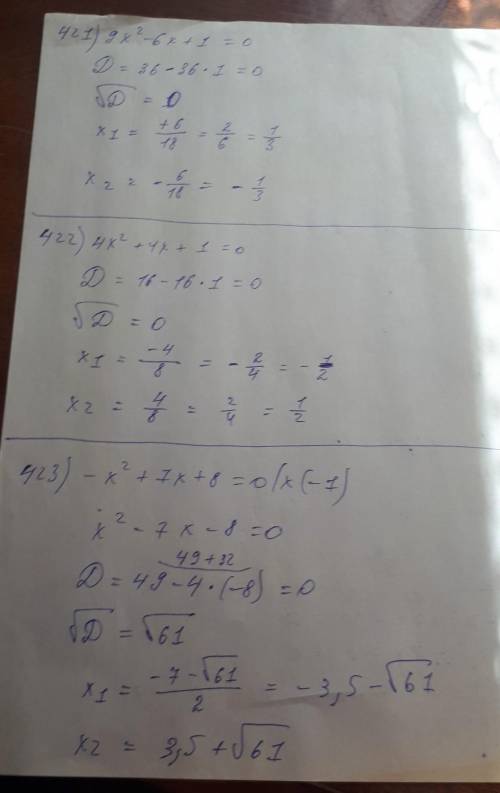 421) 9x² - 6x + 1 = 0
D = 36 - 36 · 1 = 0
√D = 0
x1 = +6/18 = 2/6 = 1/3
x2 = - 6/18 = - 1/3
422) 4x² + 4x + 1 = 0
D = 16 - 16 · 1 = 0
√D = 0
x1 = -4/8 = - 2/4 = - 1/2
x2 = 4/8 = 2/4 = 1/2
423) - x² + 7x + 8 = 0 /x(-1)
x² - 7x - 8 = 0
49 + 32
D = 49 - 4 · (-8) = 0
√D = √61
x1 = (-7 - √61)/2 = - 3,5 - √61
x2 = 3,5 + √61